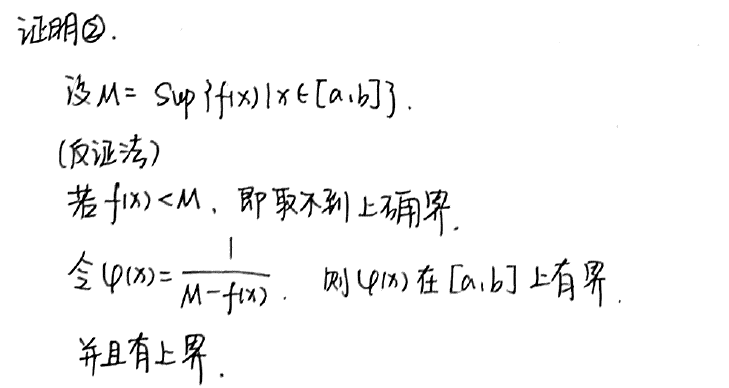 证明②.
设 M = Sup{f(x)|x∈[a,b]}.
(反证法)
若 f(x)<M, 即取不到上确界.
令 φ(x) = 1/(M-f(x)). 则 φ(x) 在 [a,b] 上有界.
并且有上界.